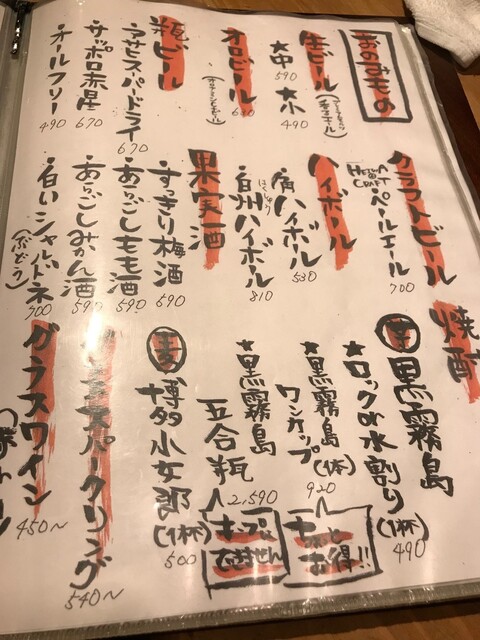 おのみもの
生ビール
★中 590
★小 490
オロビール
瓶ビール
・アサヒスーパードライ 670
・サッポロ赤星 670
・オールフリー 490
クラフトビール
CRAFT
・ペールエール 700
ハイボール
・角ハイボール 530
・白州ハイボール 810
はくしゅう
果実酒
・すっきり梅酒 590
・あらごしもも酒 590
・あらごしみかん酒 590
・白いシャルドネ 700
(ぶどう)
焼酎
芋 黒霧島
★ロックor水割り(1杯) 490
★黒霧島(1本)
ワンカップ 920
ちょっとお得!!
★黒霧島
五合瓶 2,590
麦 博多小女郎(1杯) 500
スパークリング 540〜
グラスワイン 450〜